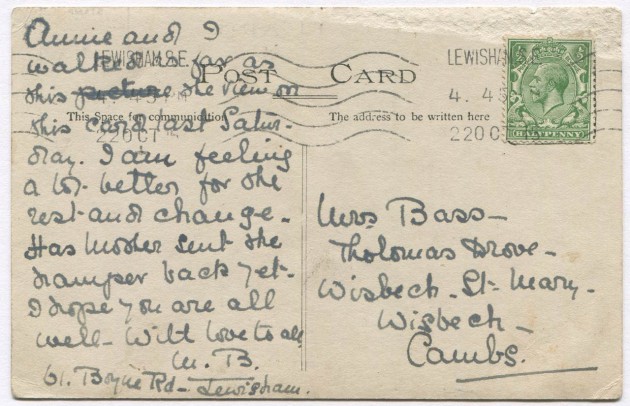 Annie and I
walked as far as
this picture the view on
this card last Satur-
day. I am feeling
a lot better for the
rest and change.
Has Mother sent the
hamper back yet.
I hope you are all
well. With love to all
M. B.
61. Boyne Rd - Lewisham.
LEWISHAM S.E.
4.45 PM
22 OCT 15
POST CARD
This Space for communication
The address to be written here
LEWISHAM
4. 4
22 OC
HALFPENNY
Mrs Bass -
Tholomas Drove -
Wisbech. St. Mary.
Wisbech -
Cambs.